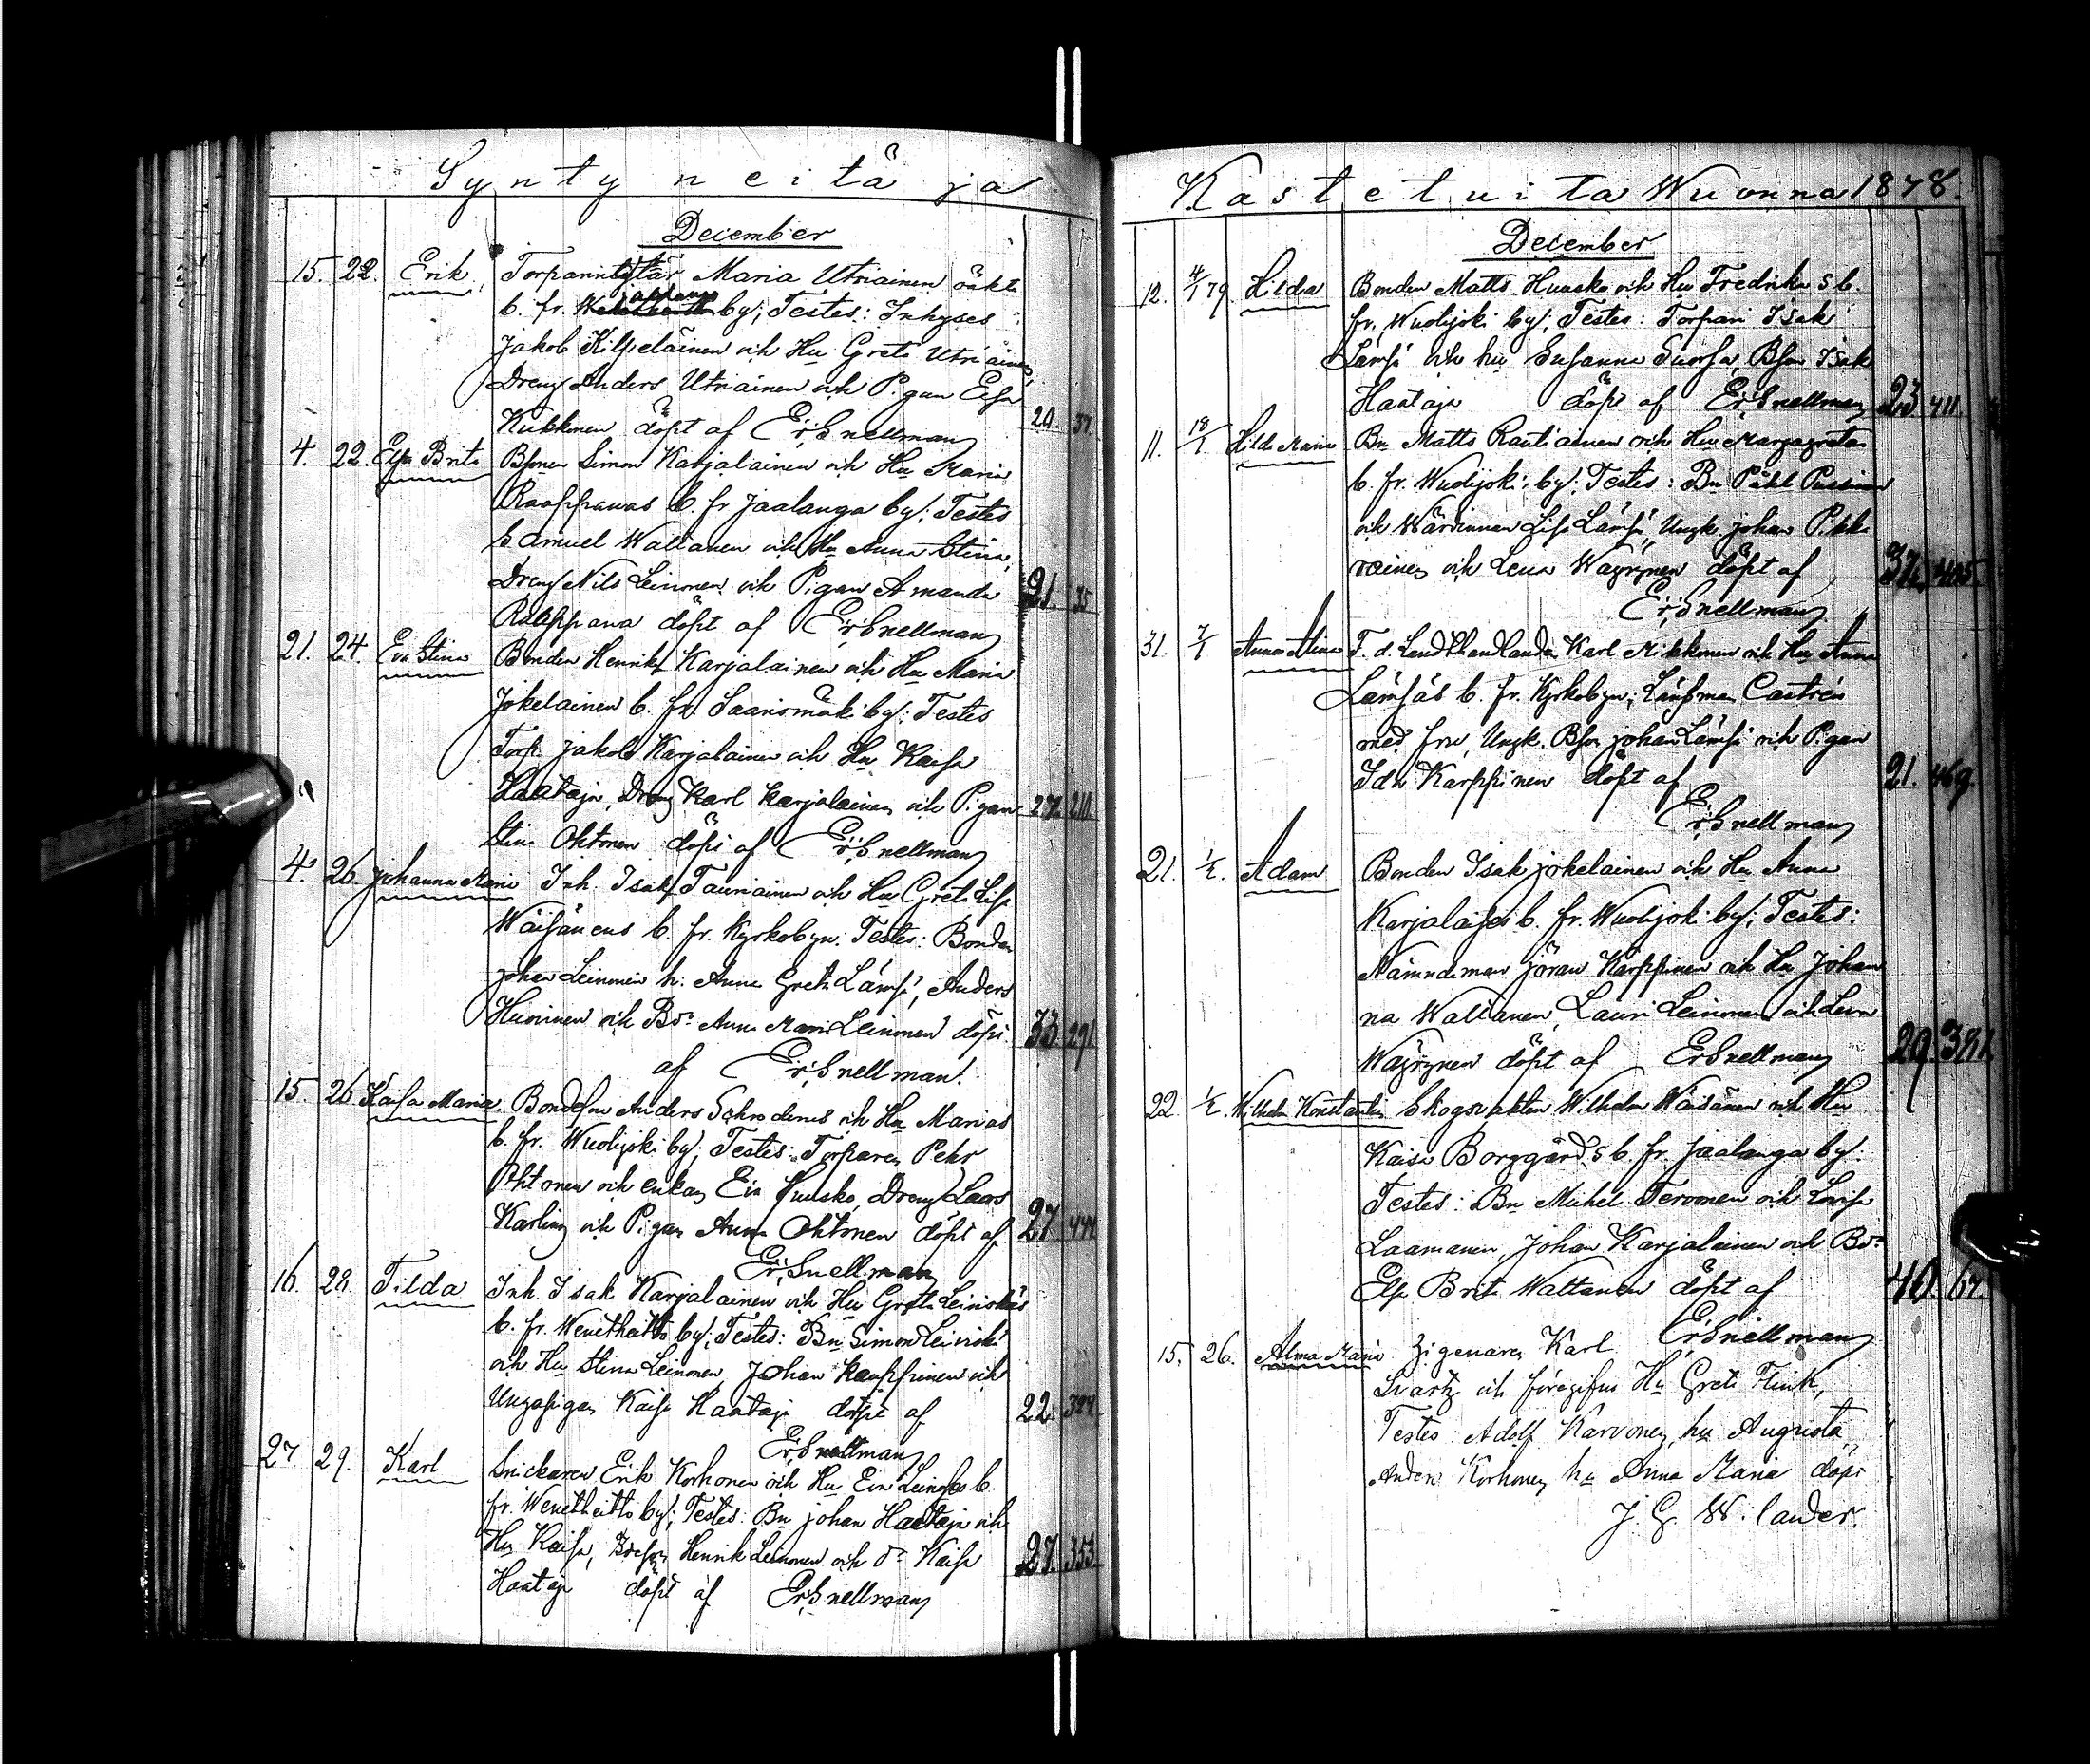 Syntyneitä ja
December
15. 22. Erik, Torparintytär Maria Utriainen oäkta
b. fr. Jaalanga by; Testes: Inhyses
Jakob Kilpeläinen och Hu Greta Utriainen,
Dreng Anders Utriainen och Pigan Elsa
Kukkonen döpt af Er. Snellman 20. 37.
4. 22. Elsa Brita Bsonen Simon Karjalainen och Hu Maria
Raappanas b. fr Jaalanga by; Testes
Samuel Waltanen och Hu Anna Stina,
Dreng Nils Leinonen och Pigan Amanda 21. 35
Raappana döpt af Er. Snellman
21. 24. Eva Stina Bonden Henrik Karjalainen och Hu Maria
Jokelainen b. fr. Saarismäki by; Testes
Torp. Jakob Karjalainen och Hu Kaisa
Haataja, Dreng Karl Karjalainen och Pigan 27. 210.
Stina Ohtonen döpt af Er. Snellman
4. 26. Johanna Maria Inh. Isak Tauriainen och Hu Greta Lisa
Wäisänens b. fr. Kyrkobyn; Testes: Bonden
Johan Leinonen h. Anna Greta Lämsä, Anders
Huovinen och Bdr Anna Maria Leinonen döpt 33. 291.
af Er. Snellman.
15. 26. Kaisa Maria. Bondeson Anders Schroderus och Hu Marias
b. fr. Wuolijoki by; Testes: Torparen Pehr
Ohtonen och enkan Eva Huusko, Dreng Laars
Karling och Pigan Anna Ohtonen döpt af 27. 444
Er. Snellman
16. 28. Tilda Inh. Isak Karjalainen och Hu Greta Leinoskäs
b. fr. Wenetheitto by; Testes: Bn Simon Leinonen
och Hu Stina Leinonen, Johan Kauppinen och
Ungapigan Kaisa Haataja döpt af 22. 324.
Er. Snellman
27. 29. Karl Snickaren Erik Korhonen och Hu Eva Leinoskäs b.
fr. Wenetheitto by; Testes: Bn Johan Haataja och
Hu Kaisa, Bdeson Henrik Leinonen och dr Kaisa 27. 353.
Haataja döpt af Er. Snellman
Kastetuita Wuonna 1878.
December
12. 4/1 79. Hilda Bonden Matts Huusko och Hu Fredrika s b.
fr. Wuolijoki by; Testes: Torpari Isak
Lämsä och hu Susanna Tuorsa, Bson Isak
Haataja döpt af Er. Snellman 23 411.
11. 18/1. Hilda Maria Bn Matts Rautiainen och Hu Margareta
b. fr. Wuolijoki by; Testes: Bn Påhl Pussinen
och Wärdinnan Lisa Lämsä, Ungk. Johan Pikka
rainen och Lena Wäyrynen döpt af 37. 405.
Er. Snellman
31. 7/1 Anna Alina F. d. Landthandlanden Karl Mikkonen och Hu Anna
Lämsäs b. fr. Kyrkobyn; Länsman Castrén
med fru, Ungk. Bson Johan Lämsä och Pigan
Ida Karppinen döpt af 21. 469.
Er. Snellman
21. 1/2. Adam Bonden Isak Jokelainen och Hu Anna
Karjalaises b. fr. Wuolijoki by; Testes:
Nämndeman Jöran Karppinen och Hu Johan
na Waltanen, Lauri Leinonen och Lena
Wäyrynen döpt af Er Snellman 29. 381.
22. 1/2. Wilhelm Konstantin Skogsvakten Wilhelm Wäisänen och Hu
Kaisa Borggårds b. fr. Jaalanga by:
Testes: Bn Mickel Tervonen och Lovisa
Laamanen, Johan Karjalainen och Bdr
Elsa Brita Waltanen döpt af 40. 67.
Er. Snellman
15. 26. Alma Maria Zigenaren Karl
Svartz och föregifna Hu Greta Flink,
Testes: Adolf Karvonen, hu Augusta,
Anders Korhonen hu Anna Maria döpt
J. G. Wilander.